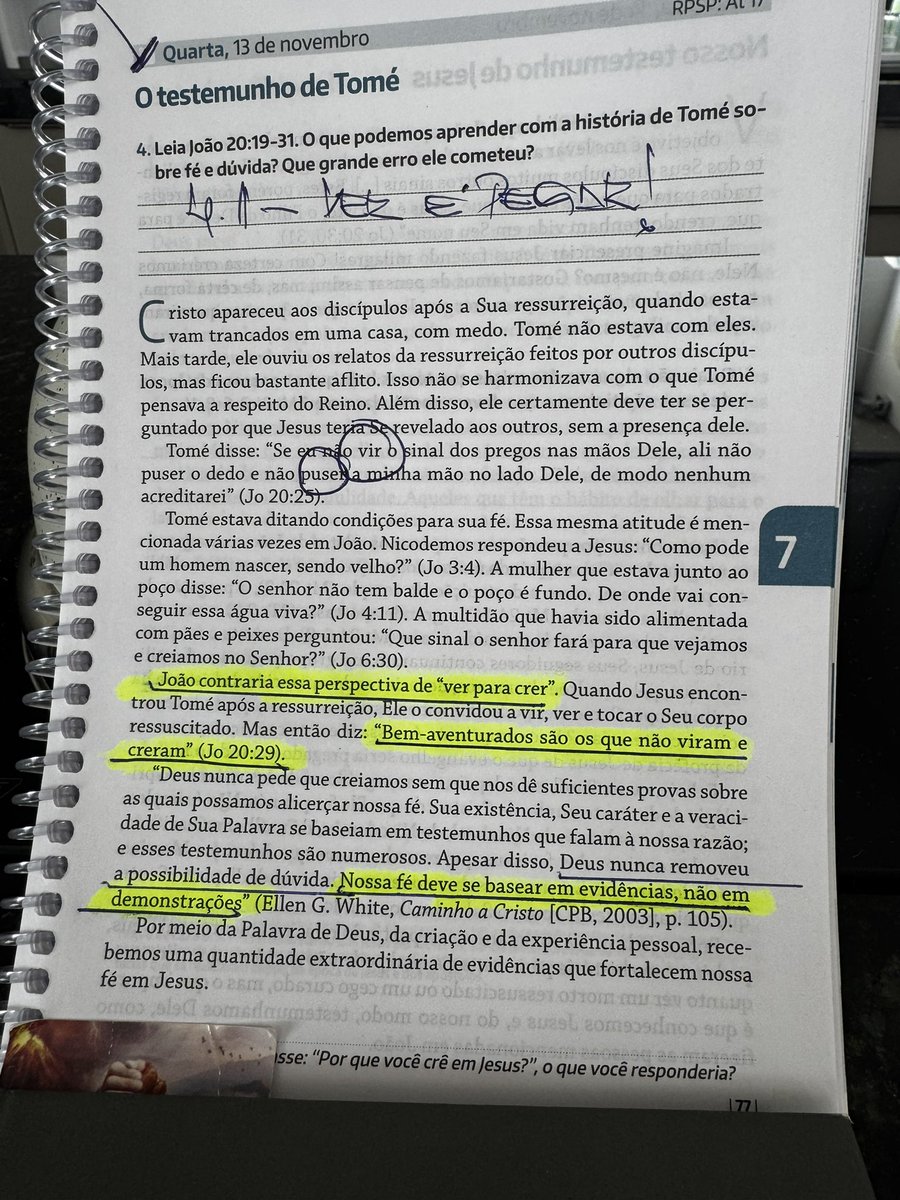 RPSP: At 17
Quarta, 13 de novembro
O testemunho de Tomé
4. Leia João 20:19-31. O que podemos aprender com a história de Tomé so-
bre fé e dúvida? Que grande erro ele cometeu?
VER E PEGAR!
Cristo apareceu aos discípulos após a Sua ressurreição, quando esta-
vam trancados em uma casa, com medo. Tomé não estava com eles.
Mais tarde, ele ouviu os relatos da ressurreição feitos por outros discípu-
los, mas ficou bastante aflito. Isso não se harmonizava com o que Tomé
pensava a respeito do Reino. Além disso, ele certamente deve ter se per-
guntado por que Jesus teria Se revelado aos outros, sem a presença dele.
Tomé disse: “Se eu não vir o sinal dos pregos nas mãos Dele, ali não
puser o dedo e não puser a minha mão no lado Dele, de modo nenhum
acreditarei” (Jo 20:25).
Tomé estava ditando condições para sua fé. Essa mesma atitude é men-
cionada várias vezes em João. Nicodemos respondeu a Jesus: “Como pode
um homem nascer, sendo velho?” (Jo 3:4). A mulher que estava junto ao
poço disse: “O senhor não tem balde e o poço é fundo. De onde vai con-
seguir essa água viva?” (Jo 4:11). A multidão que havia sido alimentada
com pães e peixes perguntou: “Que sinal o senhor fará para que vejamos
e creiamos no Senhor?” (Jo 6:30).
João contraria essa perspectiva de “ver para crer”. Quando Jesus encon-
trou Tomé após a ressurreição, Ele o convidou a vir, ver e tocar o Seu corpo
ressuscitado. Mas então diz: “Bem-aventurados são os que não viram e
creram” (Jo 20:29).
“Deus nunca pede que creiamos sem que nos dê suficientes provas sobre
as quais possamos alicerçar nossa fé. Sua existência, Seu caráter e a veraci-
dade de Sua Palavra se baseiam em testemunhos que falam à nossa razão;
e esses testemunhos são numerosos. Apesar disso, Deus nunca removeu
a possibilidade de dúvida. Nossa fé deve se basear em evidências, não em
demonstrações” (Ellen G. White, Caminho a Cristo [CPB, 2003], p. 105).
Por meio da Palavra de Deus, da criação e da experiência pessoal, rece-
bemos uma quantidade extraordinária de evidências que fortalecem nossa
fé em Jesus.
7
sse: “Por que você crê em Jesus?”, o que você responderia?
|77|